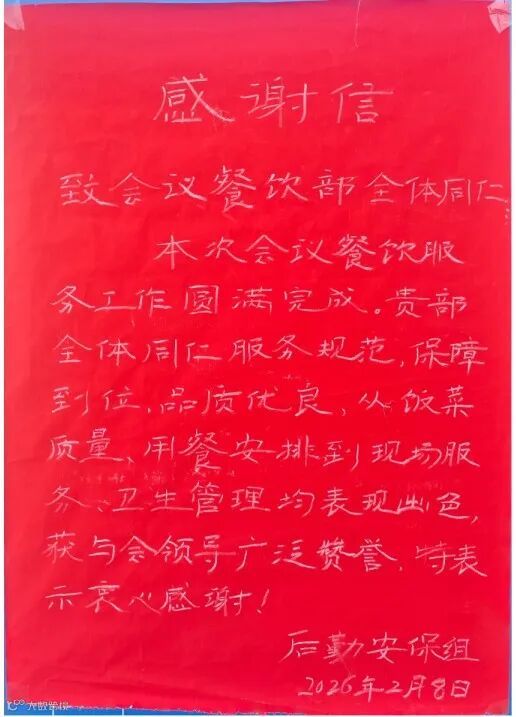 感谢信
致会议餐饮部全体同仁:
本次会议餐饮服
务工作圆满完成。贵部
全体同仁服务规范,保障
到位,品质优良,从饭菜
质量、用餐安排到现场服
务、卫生管理均表现出色,
获与会领导广泛赞誉,特表
示衷心感谢!
后勤安保组
2026年2月8日